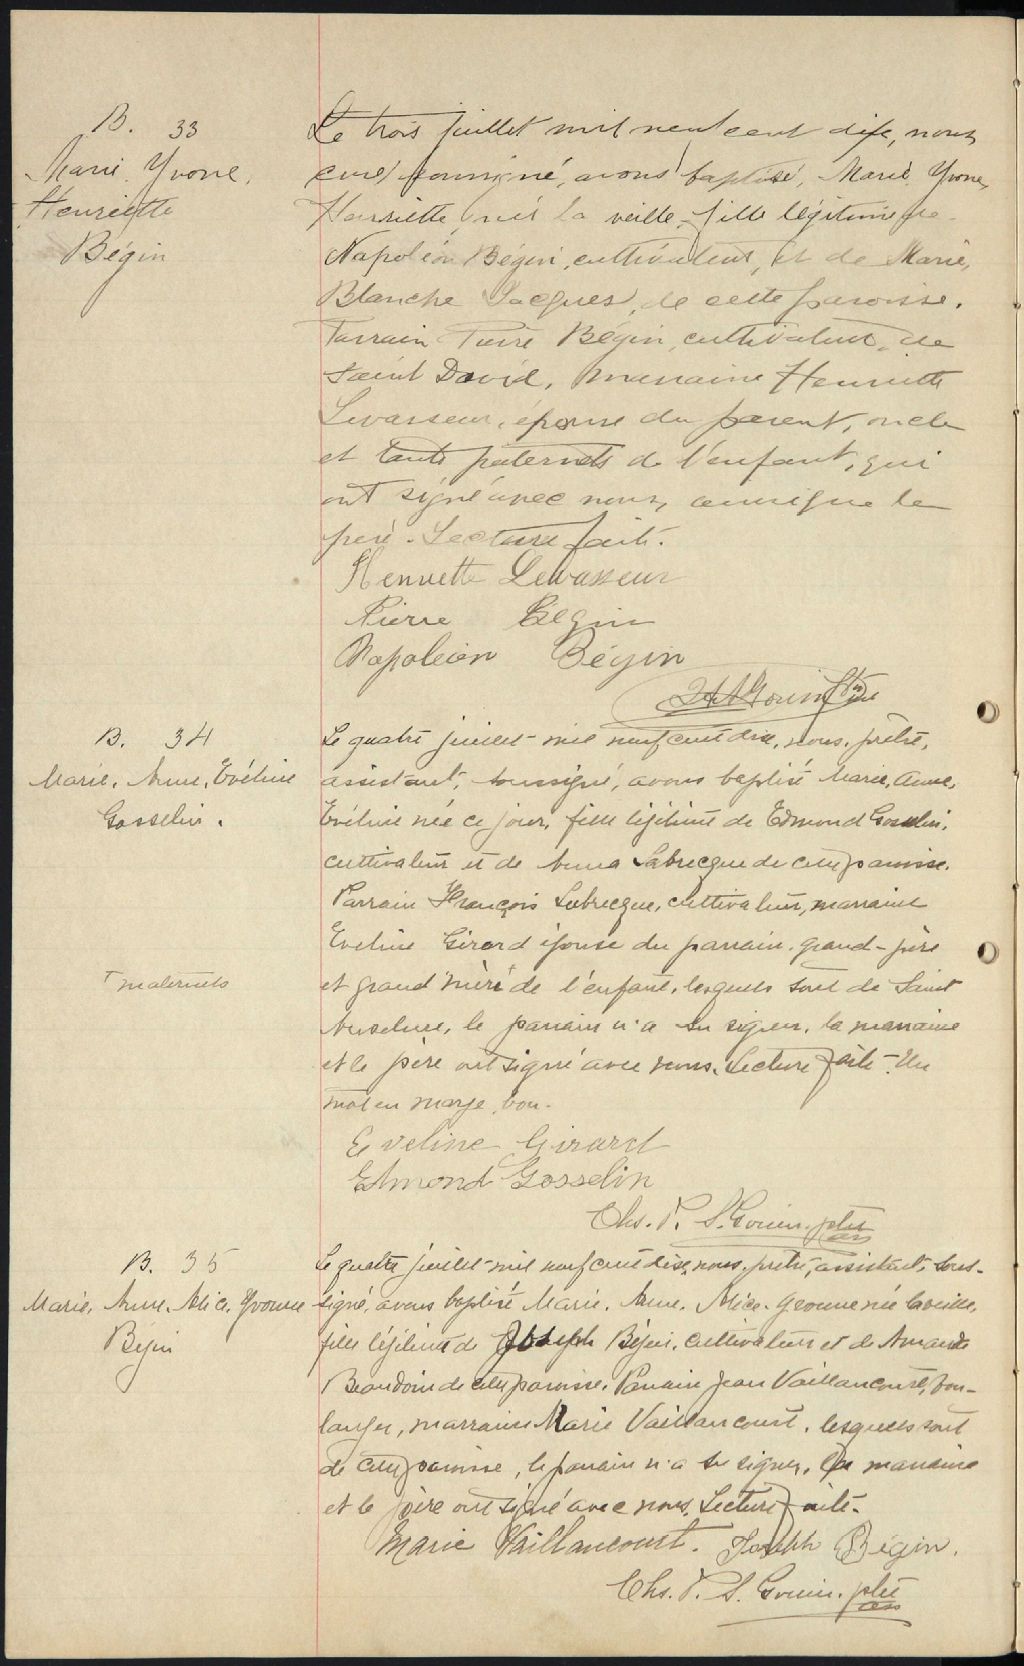 B. 33
Marie, Yvonne,
Henriette
Bégin
Le trois juillet mil neuf cent dix, nous
curé soussigné, avons baptisé, Marie, Yvonne,
Henriette, née la veille, fille légitime de
Napoléon Bégin, cultivateur, et de Marie,
Blanche Jacques, de cette paroisse.
Parrain Pierre Bégin, cultivateur, de
Saint David, marraine Henriette
Levasseur, épouse du parent, oncle
et tante paternels de l'enfant, qui
ont signé avec nous, ainsi que le
père. Lecture faite.
Henriette Levasseur
Pierre Bégin
Napoléon Bégin
Gouin Ptre
B. 34
Marie, Anne, Evéline
Gosselin.
Le quatre juillet mil neuf cent dix, nous, prêtre,
assistant, soussigné, avons baptisé Marie, Anne,
Evéline née ce jour, fille légitime de Edmond Gosselin,
cultivateur et de Anna Labrecque de cette paroisse.
Parrain François Labrecque, cultivateur, marraine
Eveline Girard épouse du parrain, grand-père
maternels
et grand'mère de l'enfant, lesquels sont de Saint
Anselme, le parrain n'a su signer, la marraine
et le père ont signé avec nous. Lecture faite. Un
mot en marge, bon.
Eveline Girard
Edmond Gosselin
Chs. P. S. Gouin. ptre
ass
B. 35
Marie, Anne, Alice, Yvonne
Bégin
Le quatre juillet mil neuf cent dix, nous, prêtre, assistant, sous-
signé, avons baptisé Marie, Anne, Alice, Yvonne née la veille,
fille légitime de Joseph Bégin, cultivateur et de Amanda
Beaudoin de cette paroisse. Parrain Jean Vaillancourt, bou-
langer, marraine Marie Vaillancourt, lesquels sont
de cette paroisse, le parrain n'a su signer, la marraine
et le père ont signé avec nous. Lecture faite.
Marie Vaillancourt. Joseph Bégin.
Chs. P. S. Gouin. ptre
ass